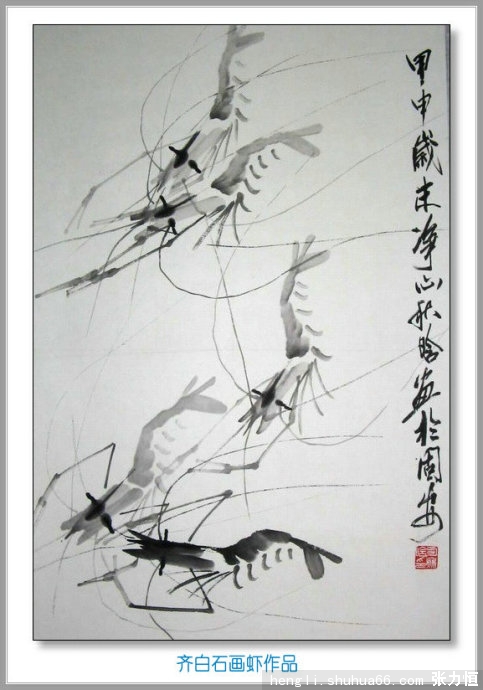 甲申歲末淨心秋晗画於固安
齐白石画虾作品
hengli.shuhua66.com 张力恒